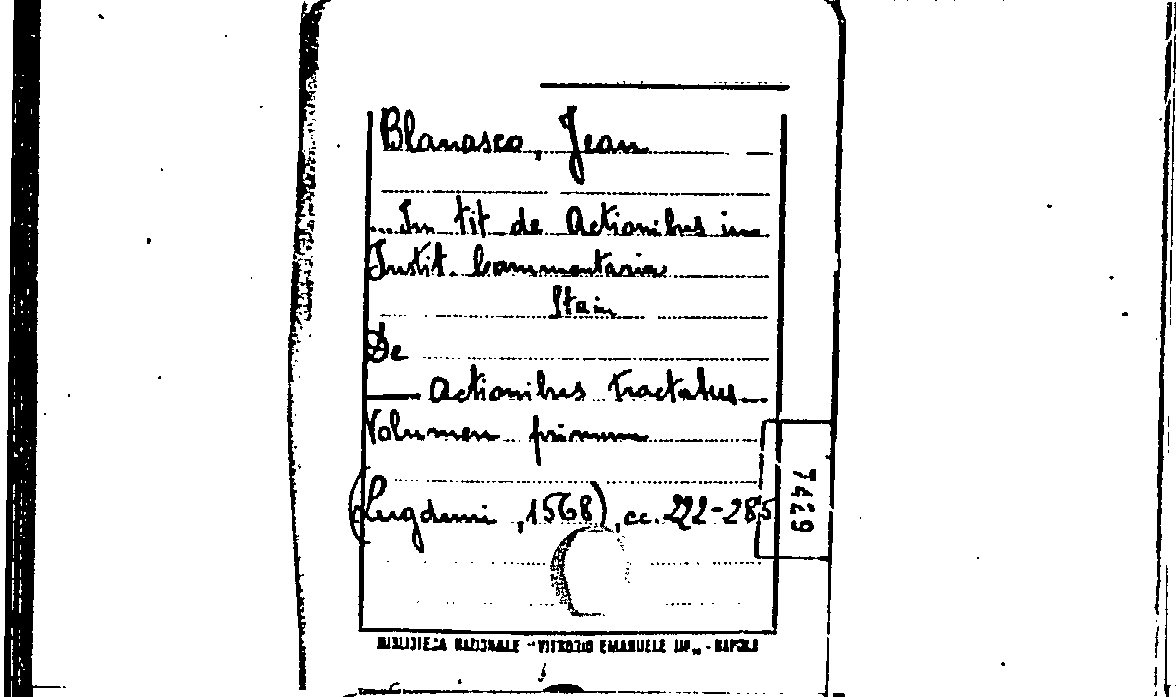 Blanasco, Jean
... In tit de Actionibus in
Instit. Commentaria
Stain
De
— Actionibus Tractatus —
Volumen primum
(Lugduni, 1568), cc. 222-285
7429
BIBLIOTECA NAZIONALE "VITTORIO EMANUELE III" - NAPOLI